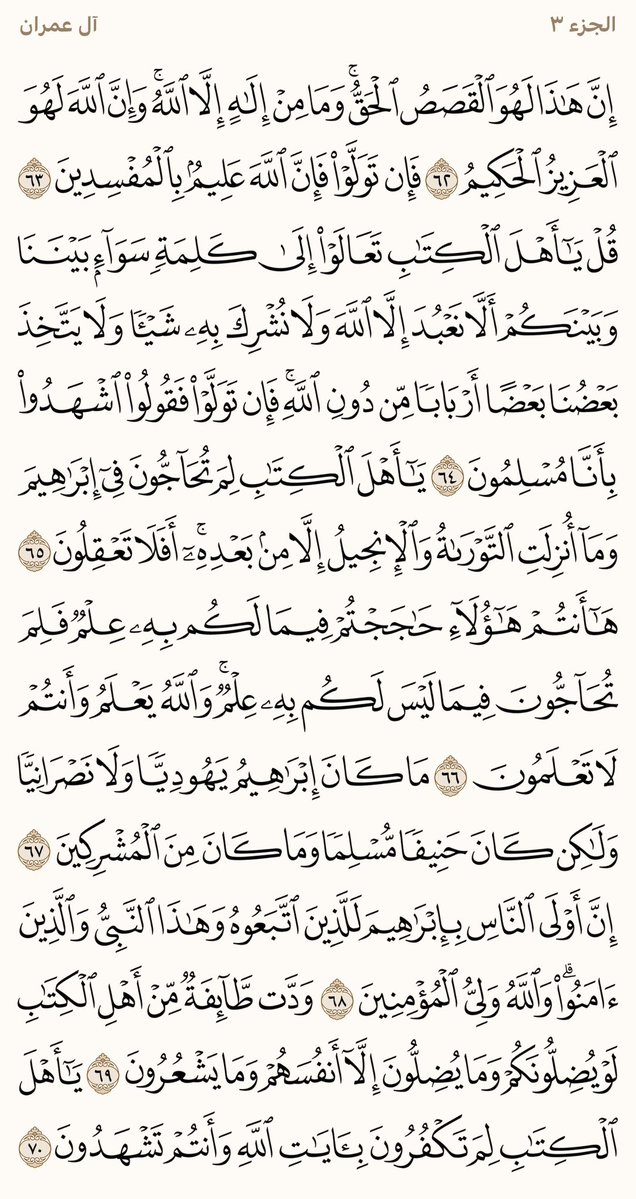 الجزء ٣
آل عمران
إِنَّ هَٰذَا لَهُوَ ٱلْقَصَصُ ٱلْحَقُّ ۚ وَمَا مِنْ إِلَٰهٍ إِلَّا ٱللَّهُ ۚ وَإِنَّ ٱللَّهَ لَهُوَ
ٱلْعَزِيزُ ٱلْحَكِيمُ ٦٢ فَإِن تَوَلَّوْا۟ فَإِنَّ ٱللَّهَ عَلِيمٌۢ بِٱلْمُفْسِدِينَ ٦٣
قُلْ يَٰٓأَهْلَ ٱلْكِتَٰبِ تَعَالَوْا۟ إِلَىٰ كَلِمَةٍ سَوَآءٍۭ بَيْنَنَا
وَبَيْنَكُمْ أَلَّا نَعْبُدَ إِلَّا ٱللَّهَ وَلَا نُشْرِكَ بِهِۦ شَيْـًٔا وَلَا يَتَّخِذَ
بَعْضُنَا بَعْضًا أَرْبَابًا مِّن دُونِ ٱللَّهِ ۚ فَإِن تَوَلَّوْا۟ فَقُولُوا۟ ٱشْهَدُوا۟
بِأَنَّا مُسْلِمُونَ ٦٤ يَٰٓأَهْلَ ٱلْكِتَٰبِ لِمَ تُحَآجُّونَ فِىٓ إِبْرَٰهِيمَ
وَمَآ أُنزِلَتِ ٱلتَّوْرَىٰةُ وَٱلْإِنجِيلُ إِلَّا مِنۢ بَعْدِهِۦٓ ۚ أَفَلَا تَعْقِلُونَ ٦٥
هَٰٓأَنتُمْ هَٰٓؤُلَآءِ حَٰجَجْتُمْ فِيمَا لَكُم بِهِۦ عِلْمٌ فَلِمَ
تُحَآجُّونَ فِيمَا لَيْسَ لَكُم بِهِۦ عِلْمٌ ۚ وَٱللَّهُ يَعْلَمُ وَأَنتُمْ
لَا تَعْلَمُونَ ٦٦ مَا كَانَ إِبْرَٰهِيمُ يَهُودِيًّا وَلَا نَصْرَانِيًّا
وَلَٰكِن كَانَ حَنِيفًا مُّسْلِمًا وَمَا كَانَ مِنَ ٱلْمُشْرِكِينَ ٦٧
إِنَّ أَوْلَى ٱلنَّاسِ بِإِبْرَٰهِيمَ لَلَّذِينَ ٱتَّبَعُوهُ وَهَٰذَا ٱلنَّبِىُّ وَٱلَّذِينَ
ءَامَنُوا۟ ۗ وَٱللَّهُ وَلِىُّ ٱلْمُؤْمِنِينَ ٦٨ وَدَّت طَّآئِفَةٌ مِّنْ أَهْلِ ٱلْكِتَٰبِ
لَوْ يُضِلُّونَكُمْ وَمَا يُضِلُّونَ إِلَّآ أَنفُسَهُمْ وَمَا يَشْعُرُونَ ٦٩ يَٰٓأَهْلَ
ٱلْكِتَٰبِ لِمَ تَكْفُرُونَ بِـَٔايَٰتِ ٱللَّهِ وَأَنتُمْ تَشْهَدُونَ ٧٠